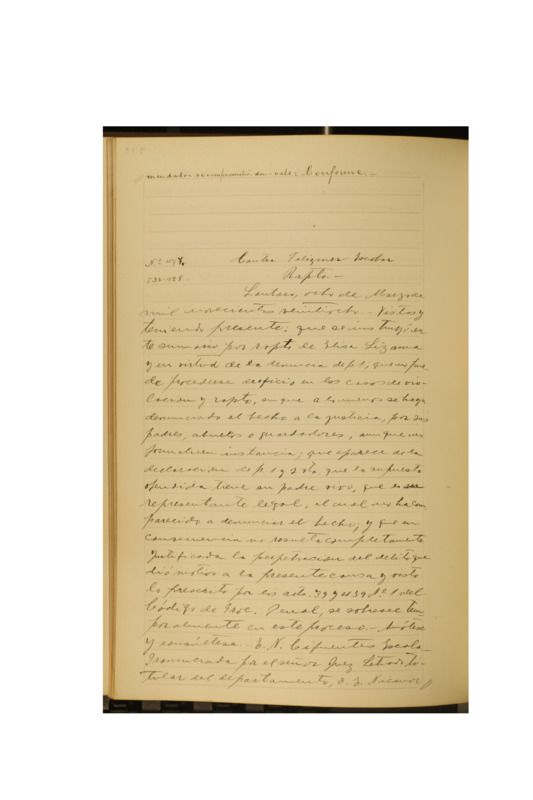 mendados = comprometió da = vale = Conforme.-
Nº 107. Contra Escobar
Rapto.-
Lautaro, ocho de Marzo de
mil novecientos veintiocho.- Vistos y
teniendo presente: que se instruyó es-
te sumario por rapto de Elisa Lizama
y en virtud de la denuncia de p. 1, que no pue-
de procederse de oficio en los casos de vio-
lacion y rapto, sin que a lo menos se haya
denunciado el hecho a la justicia, por sus
padres, abuelos o guardadores, aunque no
formalicen instancia; que aparece de la
declaracion de p. 1 y 2 vta, que la supuesta
ofendida tiene su padre vivo, que es su
representante legal, el cual no ha com
parecido a denunciar el hecho; y que en
consecuencia no resulta completamente
justificada la perpetracion del delito que
dió motivo a la presente causa y visto
lo prescrito por los arts. 39 y 439 Nº 1 del
Código de Proc. Penal, se sobresee tem
poralmente en este proceso.- Anótese
y consúltese.- E. N. Cifuentes Escala
Pronunciada por el señor Juez Letrado ti-
tular del departamento,